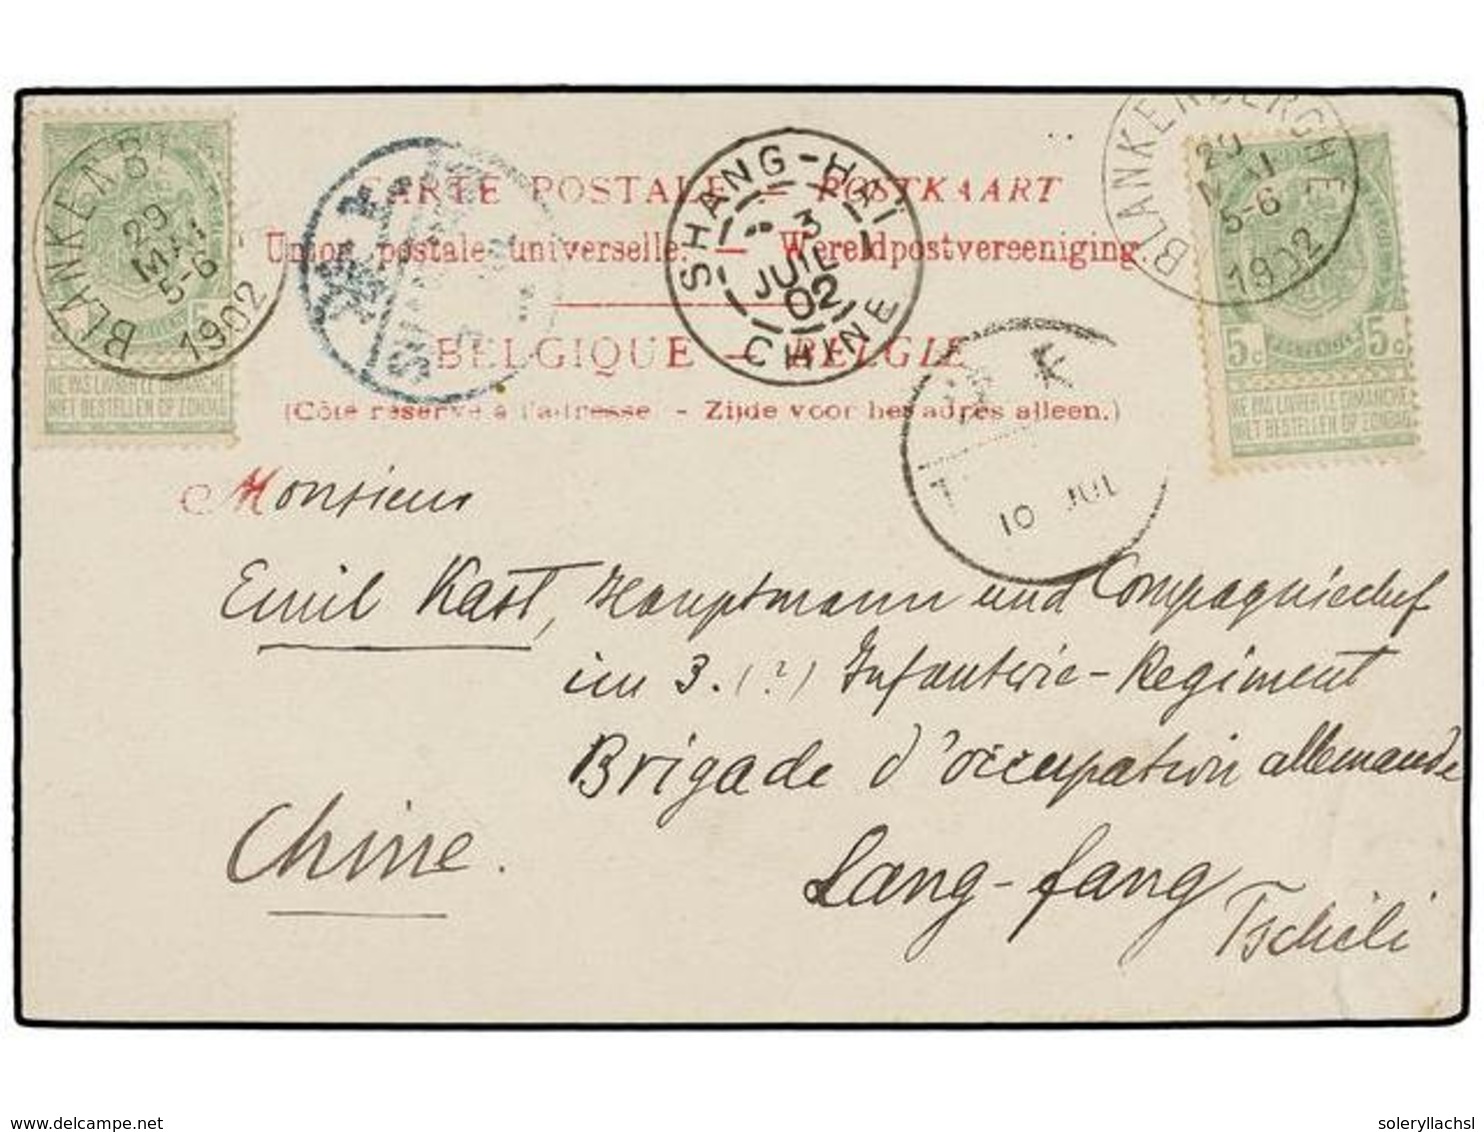 CARTE POSTALE — POSTKAART
Union postale universelle. — Wereldpostvereeniging.
BELGIQUE — BELGIE
(Côté réservé à l'adresse - Zijde voor het adres alleen.)
BLANKENBERGHE
29
MAI
5-6
1902
5
NE PAS LIVRER LE DIMANCHE
NIET BESTELLEN OP ZONDAG
SHANG-HAÏ
3
JUIL
02
CHINE
BLANKENBERGHE
29
MAI
5-6
1902
5c 5c
NE PAS LIVRER LE DIMANCHE
NIET BESTELLEN OP ZONDAG
10 JUL
Monsieur
Emil Kast, Hauptmann und Compagniechef
im 3. (?) Infanterie-Regiment
Brigade d'occupation allemande
Lang-fang
Tschili
Chine.
delcampe.net
soleryllachsl